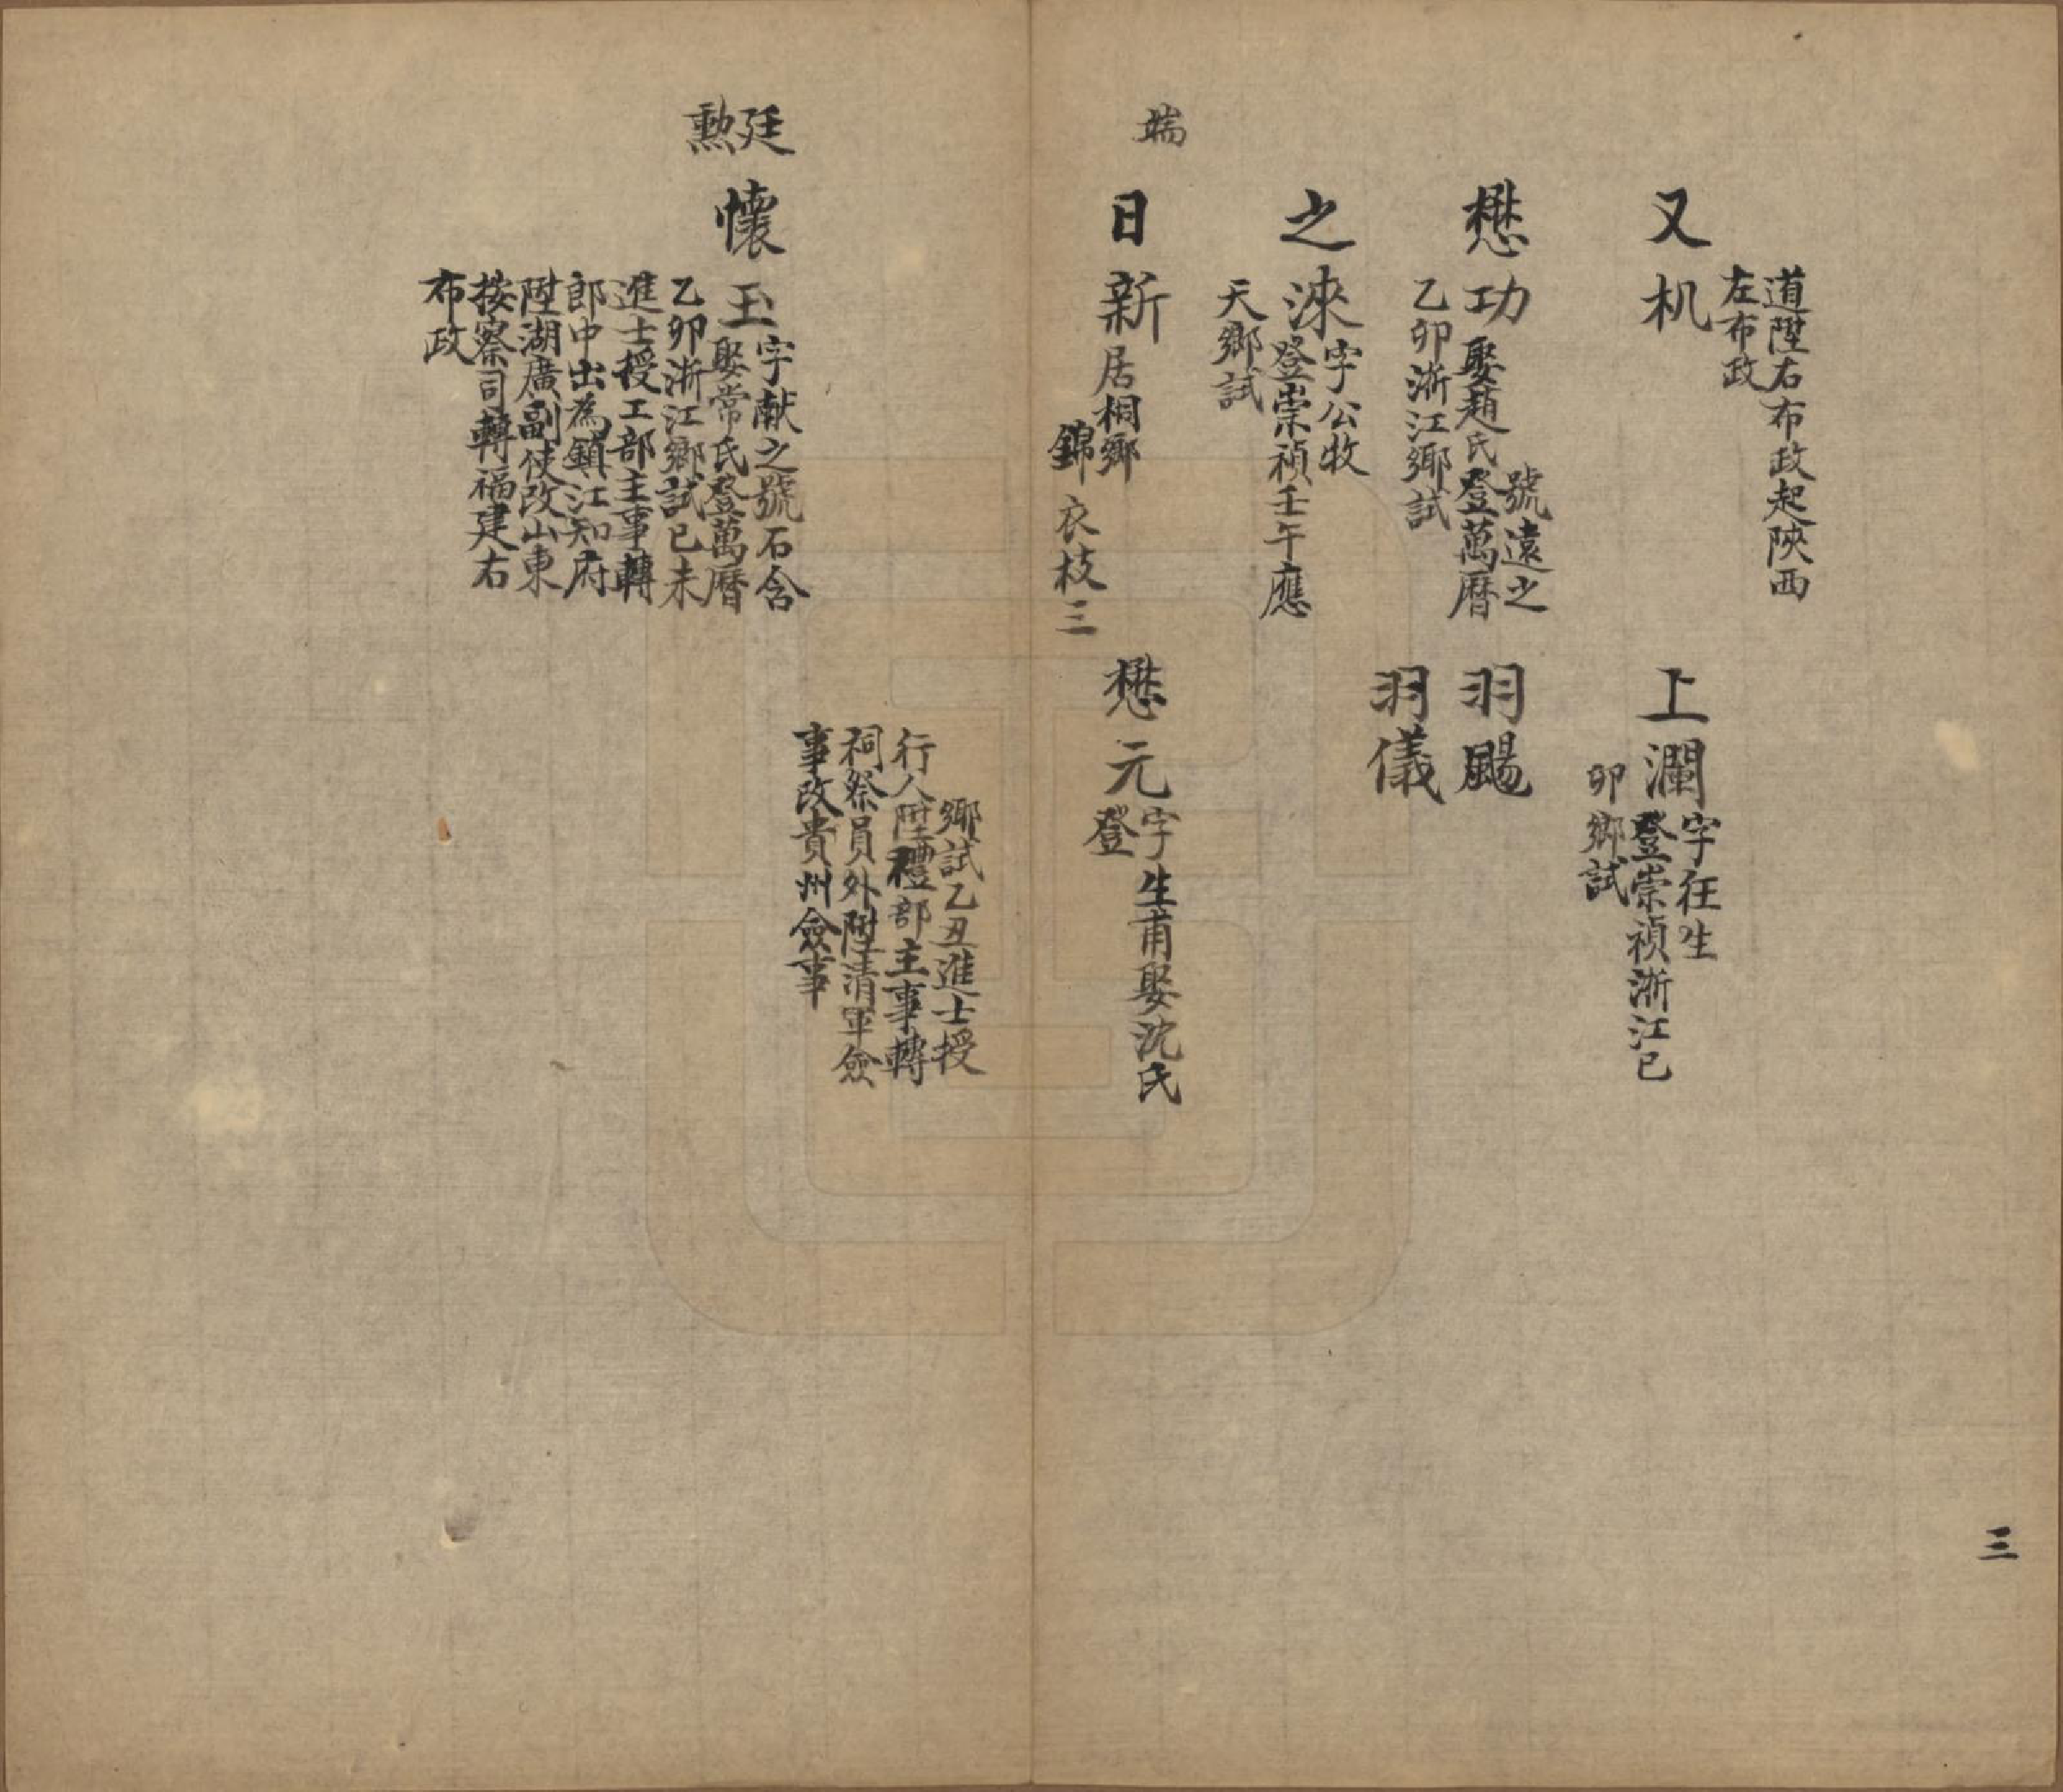 道陞右布政起陝西
左布政
又机
上瀾
字在生
登崇禎浙江已
卯鄉試
懋功
號遠之
娶趙氏登萬曆
乙卯浙江鄉試
羽颺
羽儀
之淶
字公牧
登崇禎壬午應
天鄉試
端
日新
居桐鄉
錦衣枝三
懋元
字生甫娶沈氏
登
鄉試乙丑進士授
行人陞禮部主事轉
祠祭員外陞清軍僉
事改貴州僉事
廷勲
懷玉
字献之號石含
娶常氏登萬曆
乙卯浙江鄉試已未
進士授工部主事轉
郎中出為鎮江知府
陞湖廣副使改山東
按察司轉福建右
布政
三